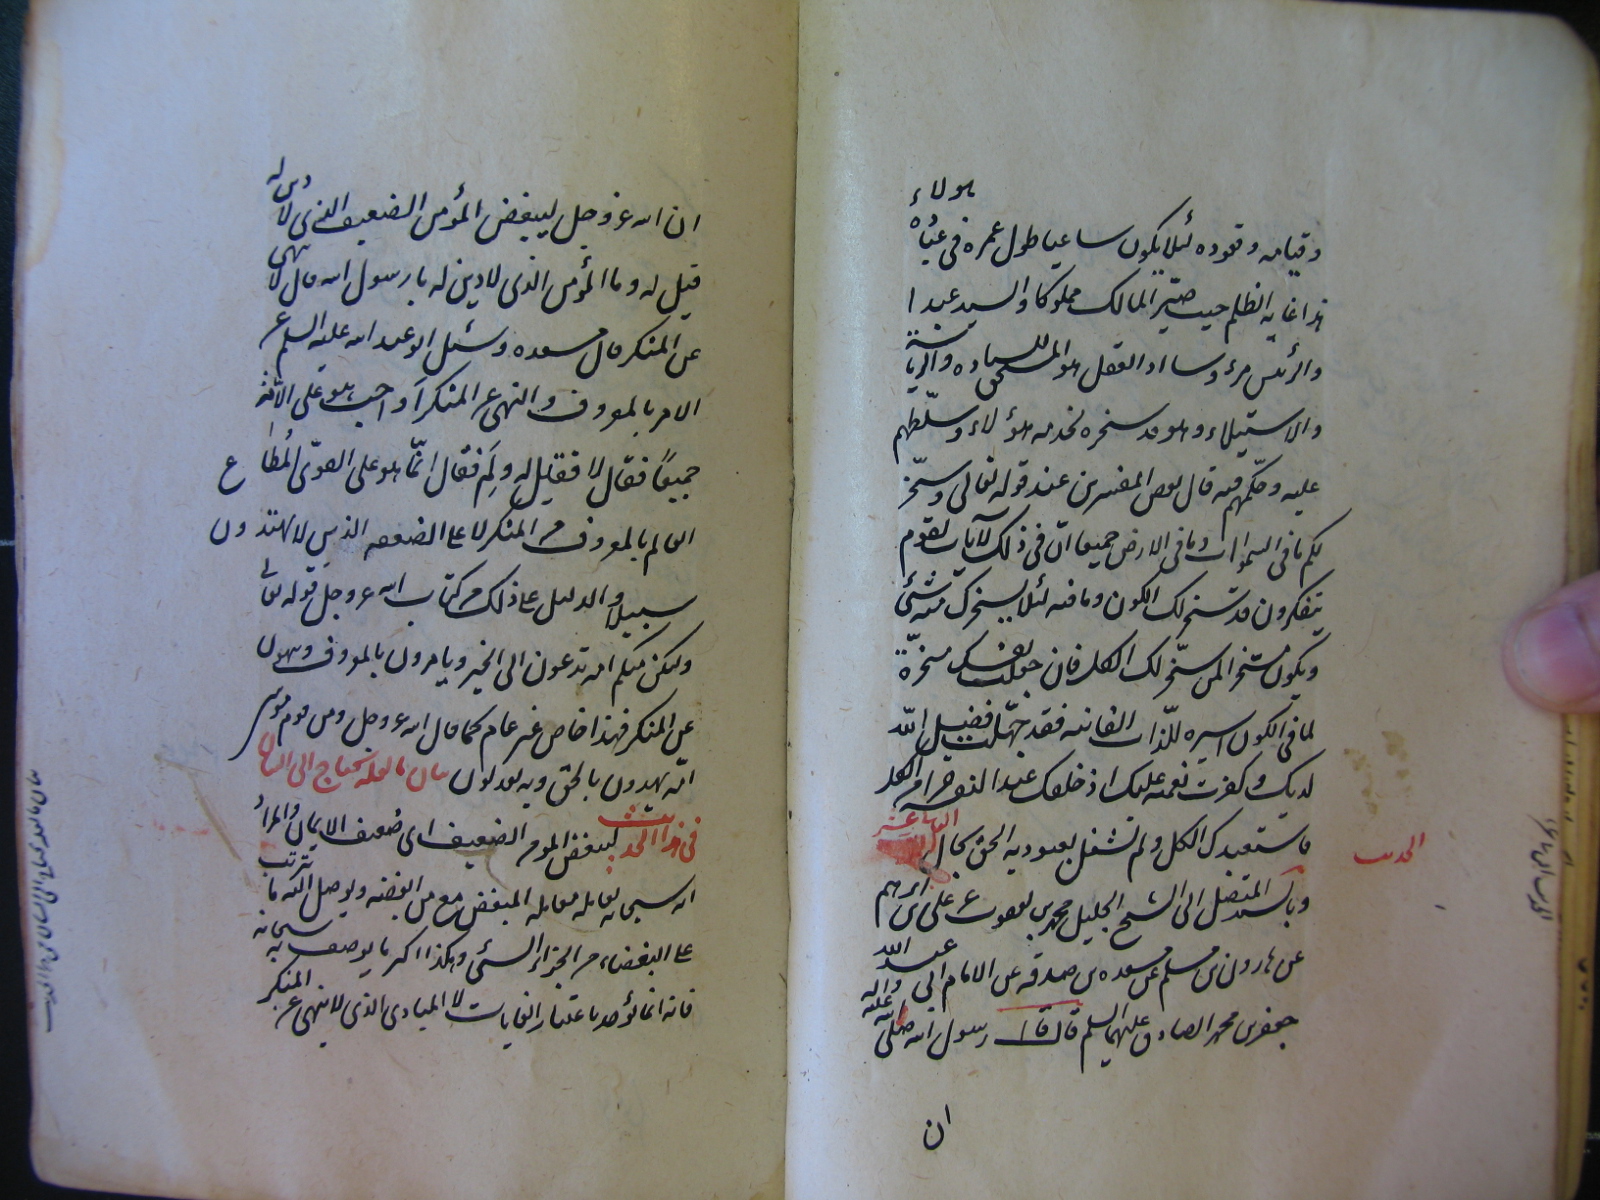 هولاء
وقيامه وقعوده لئلا يكون ساعيا طول عمره في
هذا غاية الظلم حيث صير المالك مملوكا والسيد عبدا
والرئيس مرءوسا اذ العقل هو المستحق للسياده والرياسة
والاستيلاء وهو قد سخره لخدمه هؤلاء وسلّطهم
عليه وحكّمهم فيه قال بعض المفسرين عند قوله تعالى وسخّر
لكم ما في السموات وما في الارض جميعا انّ في ذلك لآيات لقوم
يتفكرون قد سخر لك الكون وما فيه لئلا يسخرك منه شئ
ويكون مسخرا لمن سخّر لك الكل فان جعلت نفسك مسخرة
لما في الكون اسيره للّذات الفانيه فقد جهلت فضل اللّه
لديك وكفرت نعمته عليك اذ خلقك عبدا لنفسه حرا من الكل
فاستعبدك الكل ولم تشتغل بعبودية الحق بحال الحديث
وبالسند المتصل الى الشيخ الجليل محمد بن يعقوب عن على بن ابرهيم
عن هارون بن مسلم عن مسعده بن صدقه عن الامام ابى عبد اللّه
جعفر بن محمد الصادق عليهما السلم قال قال رسول اللّه صلى اللّه عليه واله
ان
ان اللّه عز وجل ليبغض المؤمن الضعيف الذى لا دين له
قيل له وما المؤمن الذى لا دين له يا رسول اللّه قال لا ينهى
عن المنكر قال مسعده وسئل ابو عبد اللّه عليه السلم عن
الامر بالمعروف والنهى عن المنكر أواجب هو على الامّة
جميعًا فقال لا فقيل له ولِمَ فقال انّما هو على القوىّ المُطاع
العالم بالمعروف من المنكر لا على الضعفه الذين لا يهتدون
سبيلا والدليل على ذلك من كتاب اللّه عز وجل قوله تعالى
ولتكن منكم امة يدعون الى الخير ويامرون بالمعروف وينهون
عن المنكر فهذا خاص غير عام كما قال اللّه عز وجل ومن قوم موسى
امّة يهدون بالحق وبه يعدلون بيان ما لعله يحتاج الى البيان
فى هذا الحديث ليبغض المومن الضعيف اى ضعيف الايمان والمراد
انه سبحانه يعامله معامله المبغض مع من ابغضه ويوصل اليه ما يترتب
على البغضاء من الجزاء السئ وهكذا اكثر ما يوصف به سبحانه
فانه انما يؤخذ باعتبار الغايات لا المبادى الذى لا ينهى عن المنكر